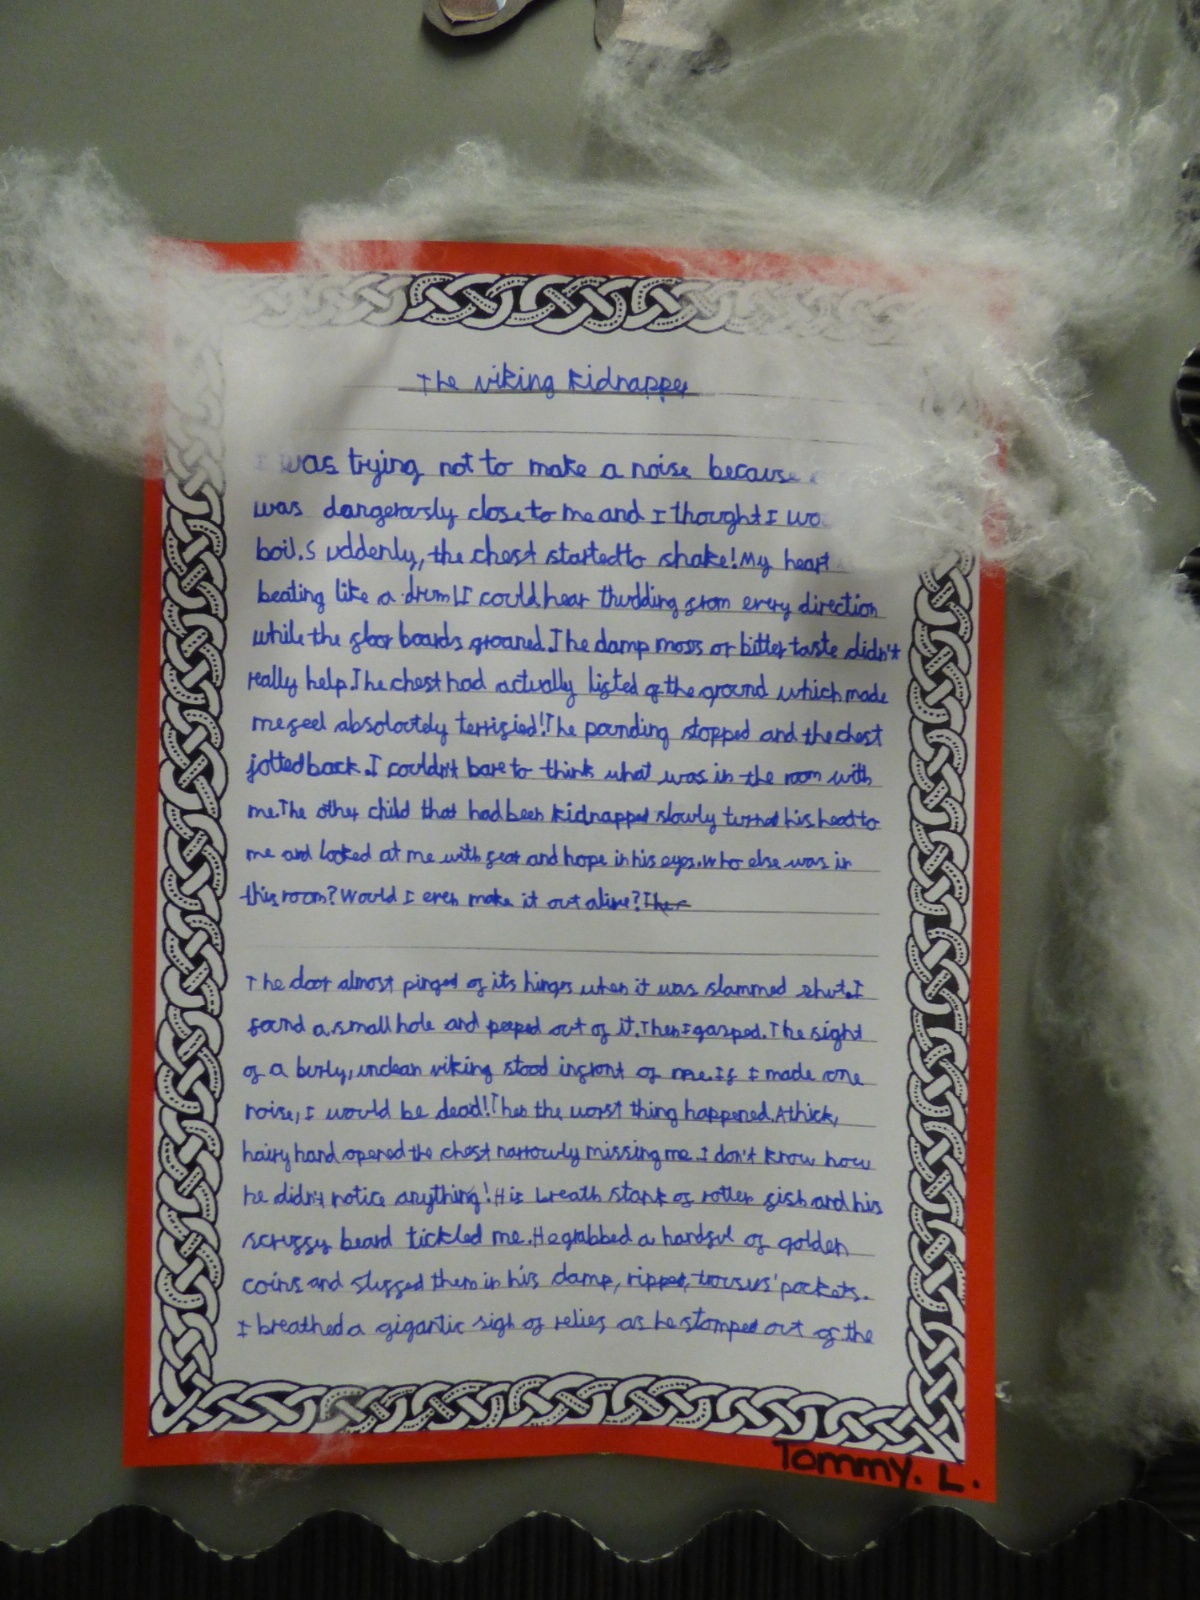 The viking kidnapper
I was trying not to make a noise because
was dangerously close to me and I thought I
boil. Suddenly, the chest started to shake! My heart
beating like a drum! I could hear thudding from every direction
while the floor boards groaned. The damp moss or bitter taste didn't
really help. The chest had actually lifted of the ground which made
me feel absoloutely terrified! The pounding stopped and the chest
jolted back. I couldn't bare to think what was in the room with
me. The other child that had been kidnapped slowly turned his head to
me and looked at me with fear and hope in his eyes. Who else was in
this room? Would I even make it out alive?
The door almost pinged of its hinges when it was slammed shut. I
found a small hole and peeped out of it. Then I gasped. The sight
of a burly, unclean viking stood infront of me. If I made one
noise, I would be dead! Then the worst thing happened. A thick,
hairy hand opened the chest narrowly missing me. I don't know how
he didn't notice anything! His breath stank of rotten fish and his
scruffy beard tickled me. He grabbed a handful of golden
coins and stuffed them in his damp, ripped, trousers' pockets.
I breathed a gigantic sigh of relief as he stomped out of the
Tommy. L.